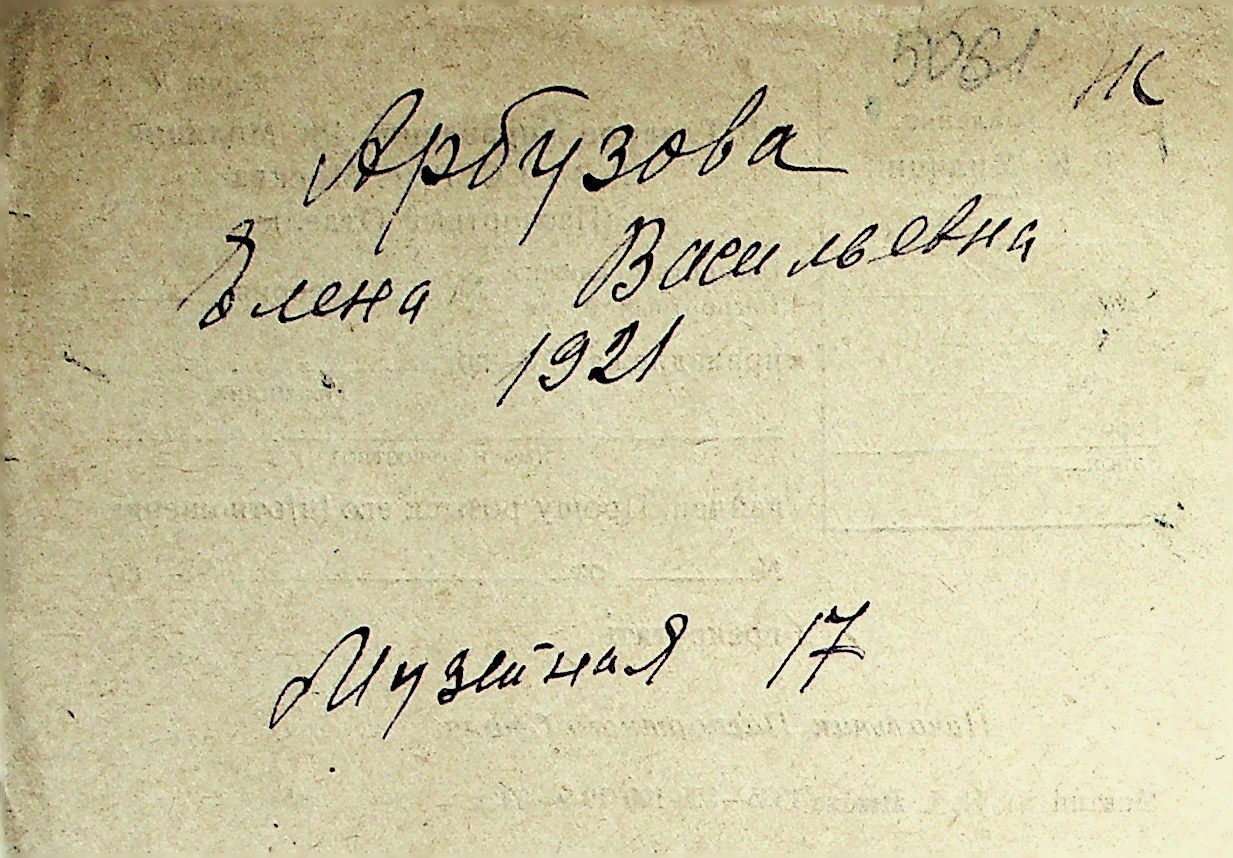 5061 Ж
Арбузова
Елена Васильевна
1921
Музейная 17